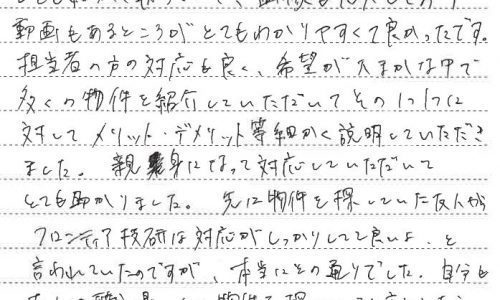 動画もあるところがとてもわかりやすくて良かったです。
担当者の方の対応も良く、希望が大まかな中で
多くの物件を紹介していただいてその1つ1つに
対してメリット・デメリット等細かく説明していただき
ました。親身になって対応していただいて
とても助かりました。先に物件を探していた友人から
フロンティア技研は対応がしっかりしてて良いよ、と
言われていたのですが、本当にその通りでした。自分も